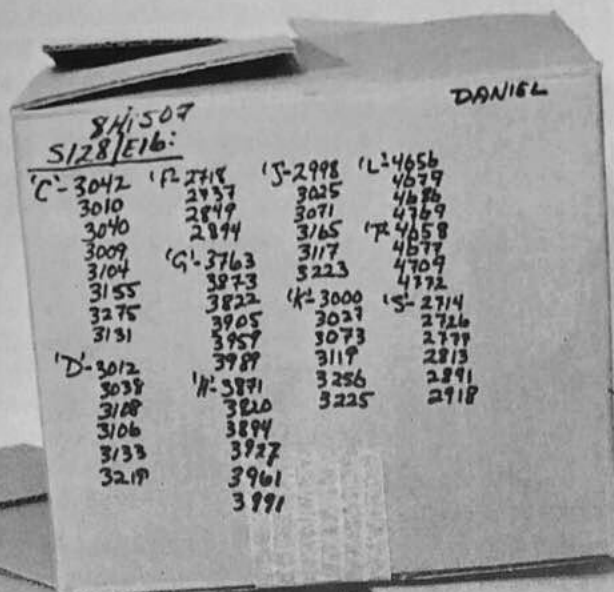 DANIEL
8Hi507
S128/E16:
'C'- 3042
3010
3040
3009
3104
3155
3275
3131
'D'- 3012
3038
3108
3106
3133
3219
'F'- 2718
2737
2849
2894
'G'- 3763
3873
3822
3905
3959
3989
'H'- 3871
3820
3894
3927
3961
3991
'J'- 2998
3025
3071
3165
3117
3223
'K'- 3000
3027
3073
3119
3256
3225
'L'- 4656
4679
4686
4769
4658
4677
4709
4772
'S'- 2714
2726
2777
2813
2891
2918